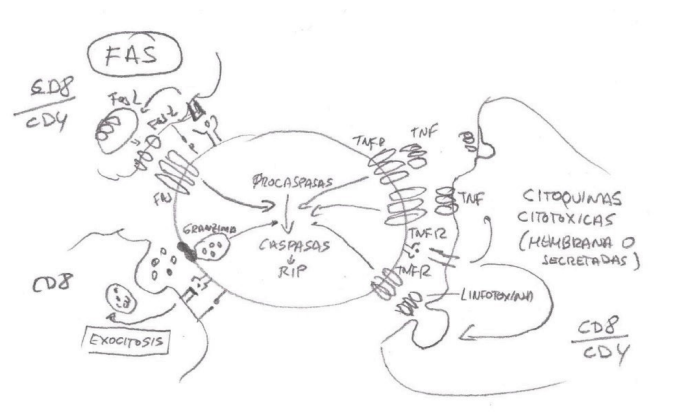 FAS
CD8
CD4
FasL
Fas-L
FAS
PROCASPASAS
CASPASAS
RIP
GRANZIMA
CD8
EXOCITOSIS
TNFR
TNF
TNF
TNFR
TNFR
LINFOTOXINA
CITOQUINAS
CITOTOXICAS
(MEMBRANA O
SECRETADAS)
CD8
CD4